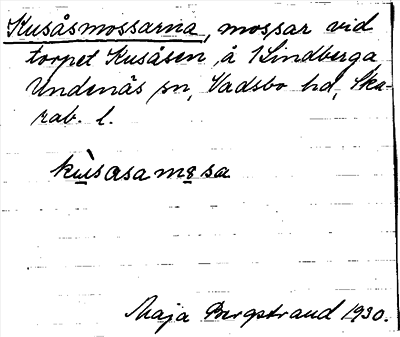 Kusåsmossarna, mossar vid
torpet Kusåsen å Lindberga
Undenäs sn, Vadsbo hd, Ska-
rab. l.
kùsasamɜsa
Maja Bergstrand 1930.